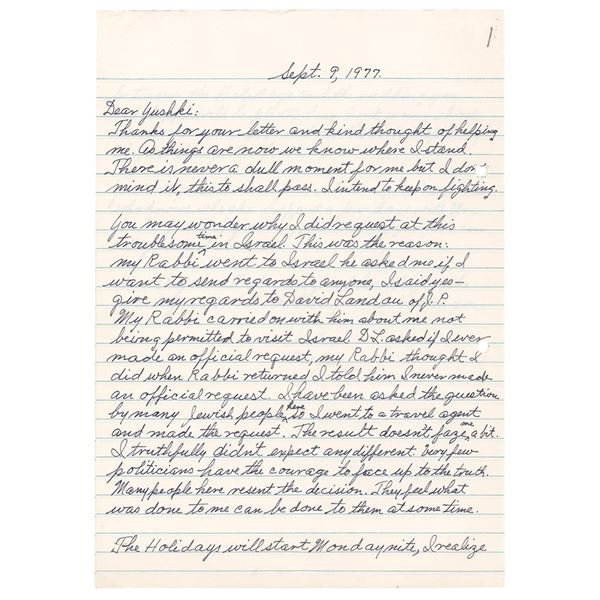 1
Sept. 9, 1977.
Dear Yushki:
Thanks for your letter and kind thought of helping
me. As things are now we know where I stand.
There is never a dull moment for me but I don
mind it, this to shall pass. I intend to keep on fighting.
You may wonder why I did request at this
troublesome time in Israel. This was the reason:
my Rabbi went to Israel he asked me if I
want to send regards to anyone, I said yes—
give my regards to David Landau of J.P.
My Rabbi carried on with him about me not
being permitted to visit Israel. D L. asked if I ever
made an official request, my Rabbi thought I
did when Rabbi returned I told him I never made
an official request. I have been asked the question
by many Jewish people here so I went to a travel agent
and made the request. The result doesn't faze me a bit.
I truthfully didn't expect any different. Very few
politicians have the courage to face up to the truth.
Many people here resent the decision. They feel what
was done to me can be done to them at some time.
The Holidays will start Monday nite, I realize